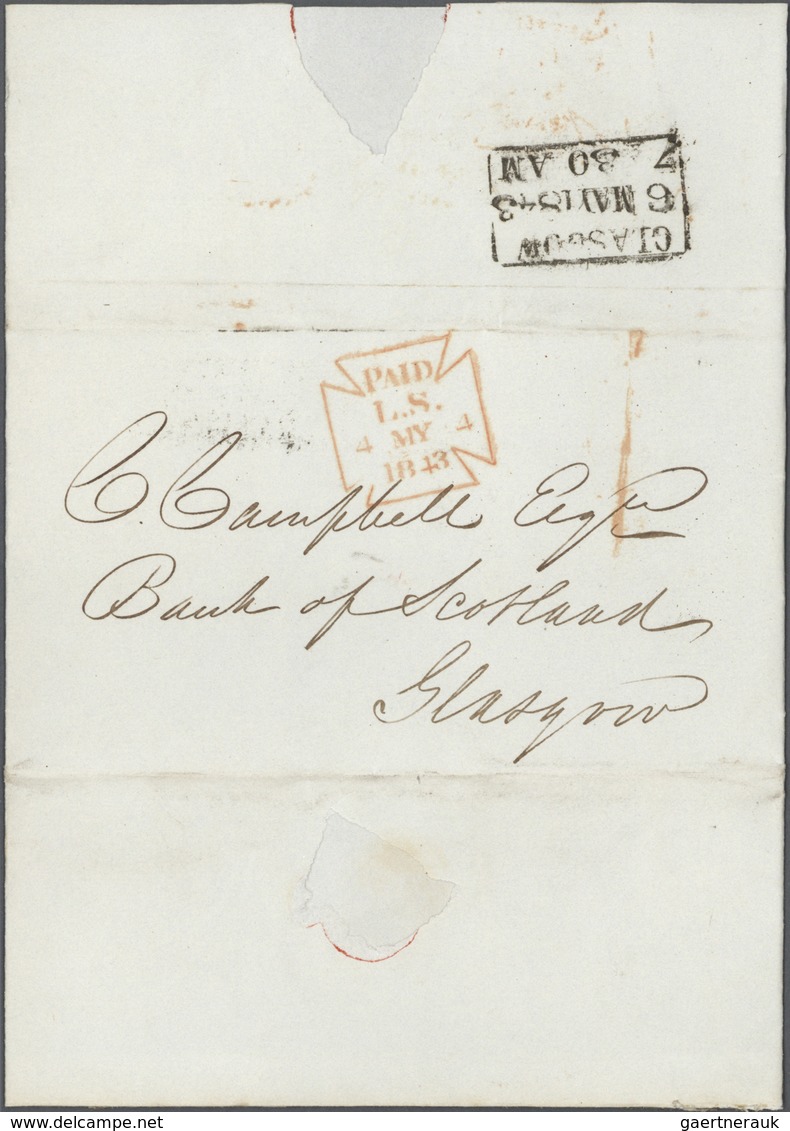 GLASGOW
6 MAY 1843
7 30 AM
PAID
L.S.
4 MY 4
1843
1
C. Campbell Esqre
Bank of Scotland
Glasgow
gaertnerauk